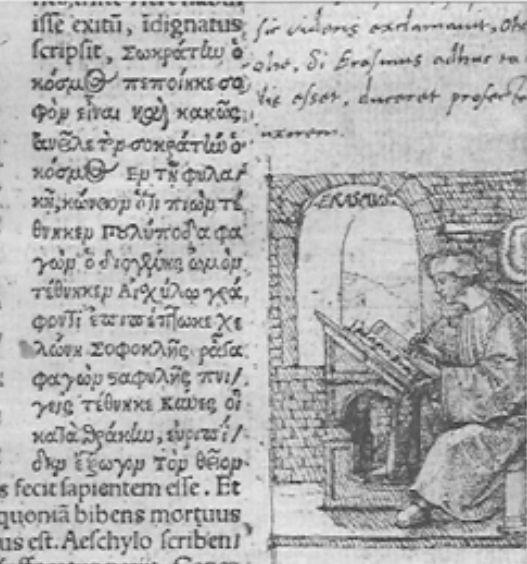 isse exitū, īdignatus
scripsit, Σωκράτην ὁ
κόσμος πεποίηκε σο
φὸν εἶναι καὶ κακῶς
ἀνεῖλε τὸν σοκράτην ὁ
κόσμος Εν τῆ φυλα
κῆ, κώνειον ὅτι πιὼν τέ
θνηκεν πουλύποδα φα
γὼν ὁ διογένης ὠμὸν
τέθνηκεν Αἰχύλω γρά,
φοντι ἐπιπέπτωκε χε
λώνη Σοφοκλῆς ῥᾶγα
φαγὼν ςαφυλῆς πνι/
γεὶς τέθνηκε Κύνες οἱ
κατὰ θράκην, ἐυριπί/
δην ἔτρωγον τὸν θεῖον
s fecit sapientem esse. Et
quoniā bibens mortuus
us est. Aeschylo scriben/
sic videns exclamauit, Ohe
ohe, Si Erasmus adhuc ta
lis esset, duceret profecto
uxorem.
ERASMVS.